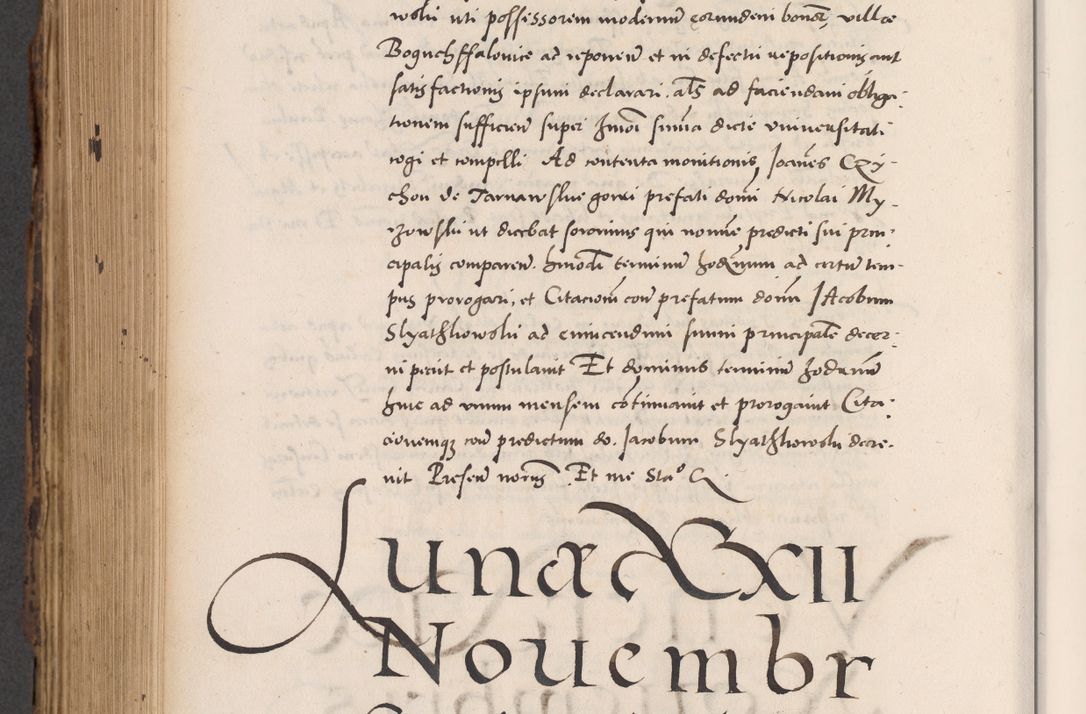 wski uti possessorem modernum eorundem bonorum, villae
Boguchffalowice ad reponen et in defectu repositionis aut
satisfactionis ipsum declarari. als ad faciendam obliga-
tionem sufficien super hmoi summa dicte universitati
cogi et compelli Ad contenta monitionis Joannes Czy-
chon de Tarnaw prefati domi Nicolai My-
szowski ut dicebat sororinus qui nomine predicti sui prin-
cipalis comparen. hmodi terminum hodiernum ad certum tem-
pus prorogari, et Citacionem con prefatum domi Jacobum
Slyathkowski ad evincendum suum principalem decer-
ni petiit et postulavit Et dominus terminum hodiernum
hinc ad unum mensem continuavit et prorogavit Cita-
cionemq con predictum do. Jacobum Slyathkowski decre-
vit Presen notarijs Et me Sta° Q
Lunæ XXII
Nouembr